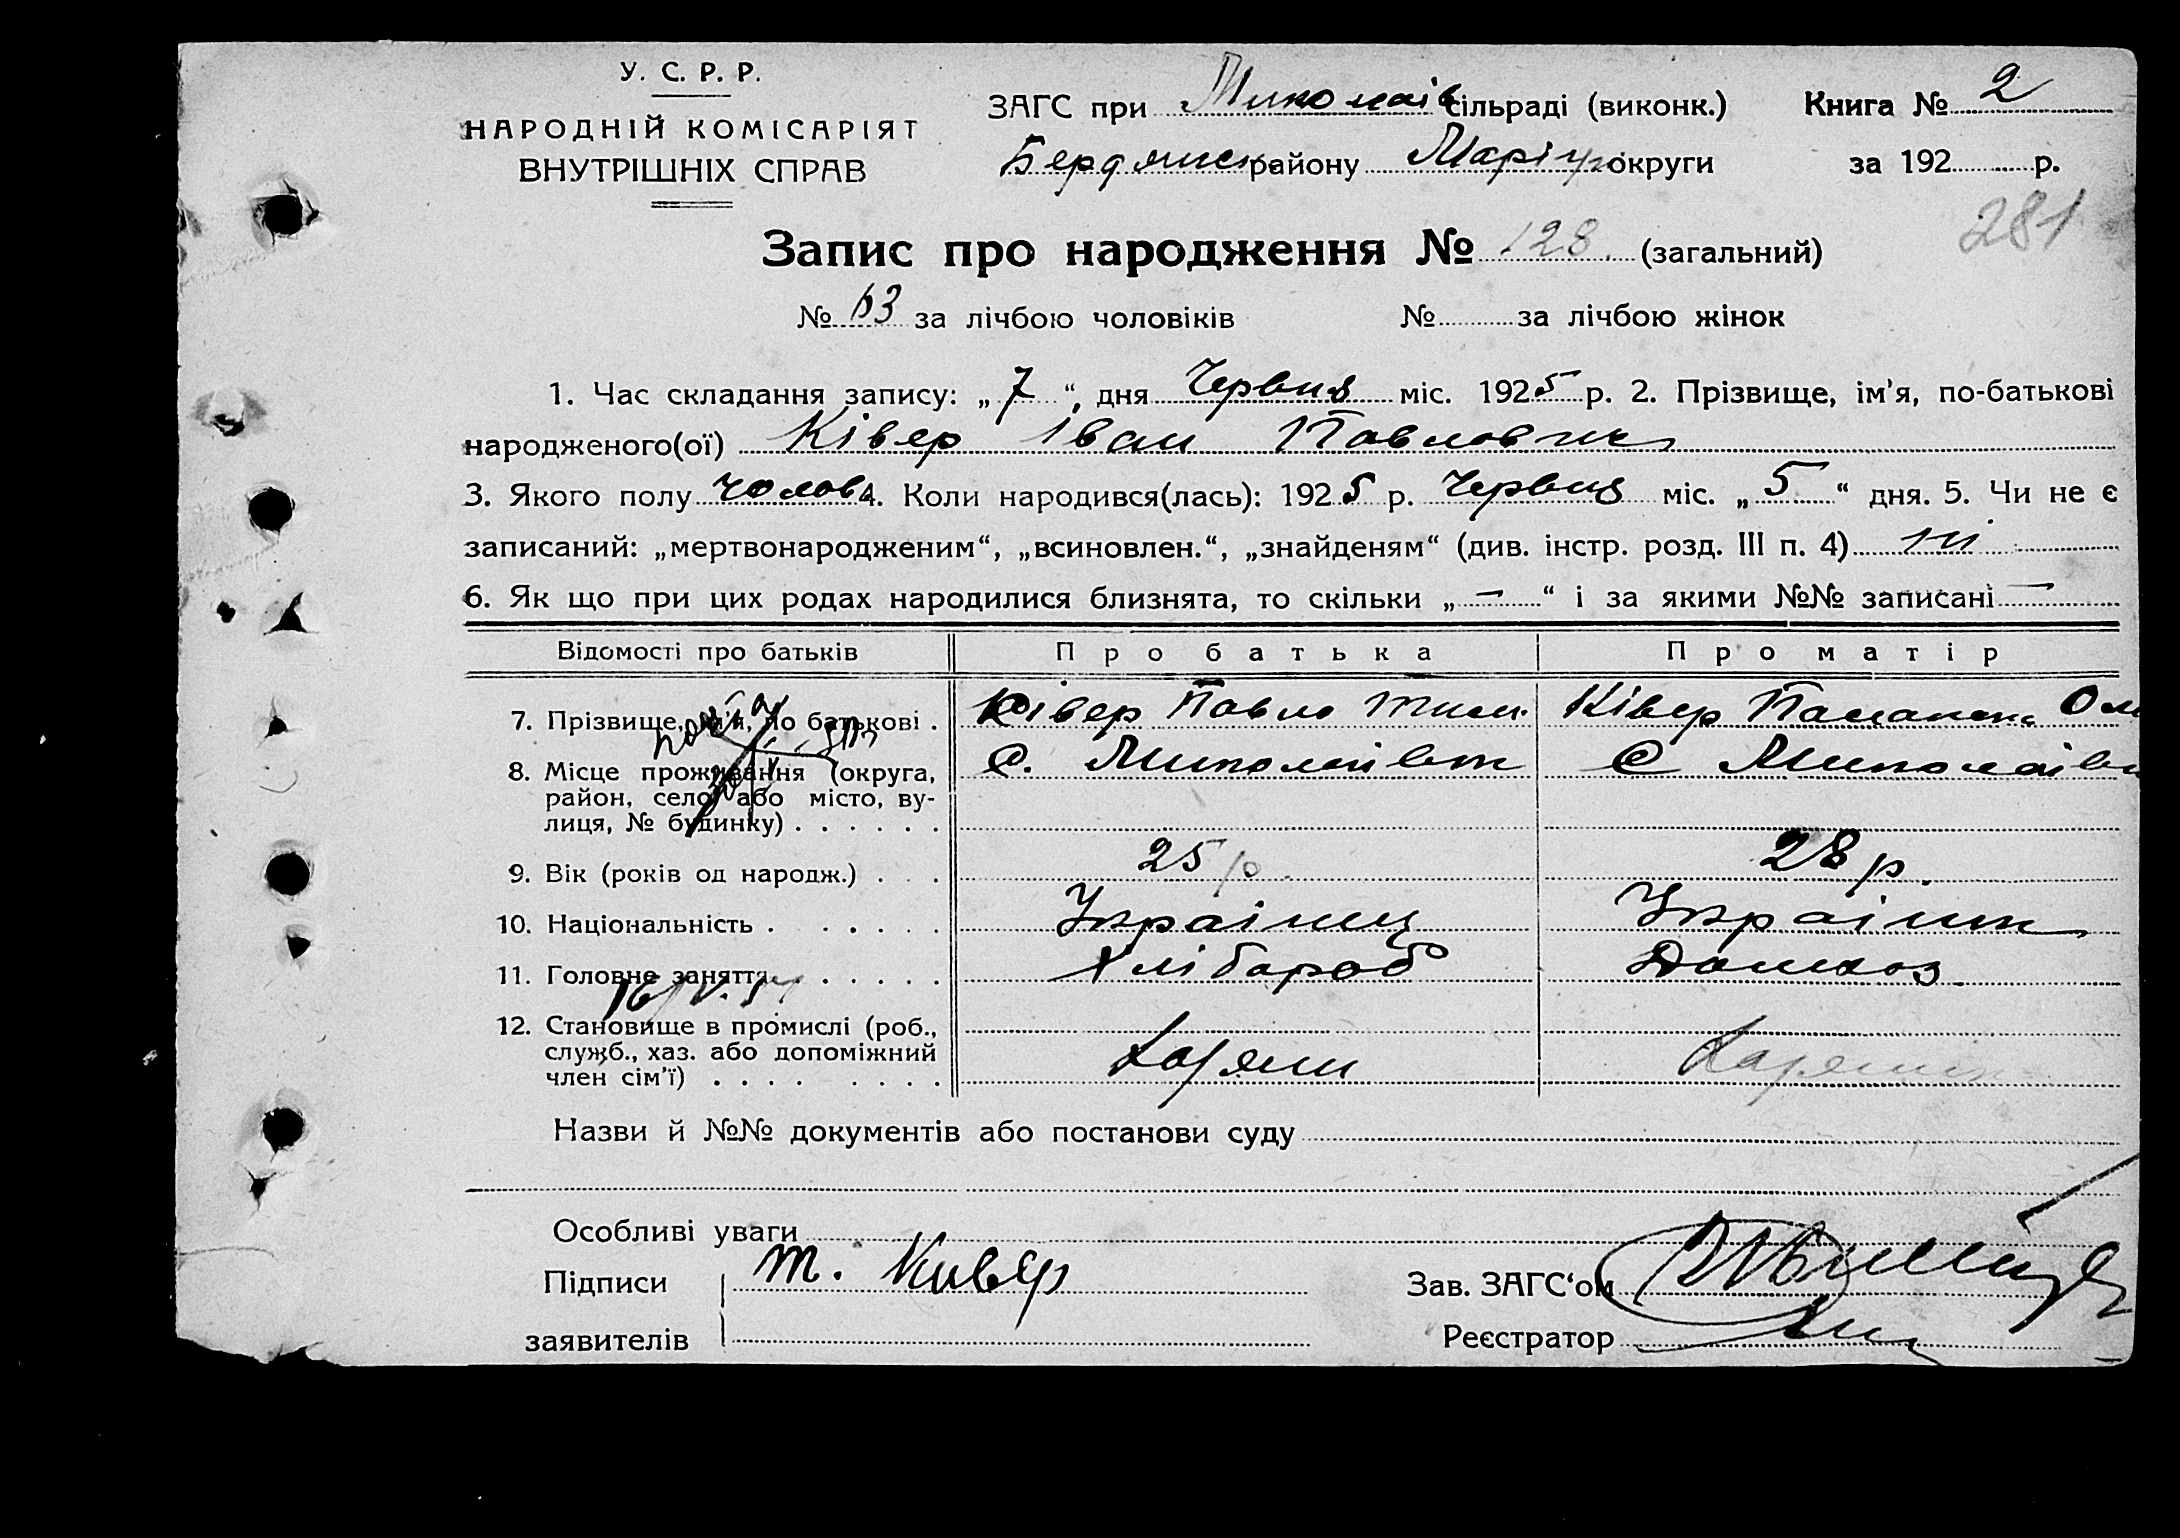 У. С. Р. Р.
НАРОДНІЙ КОМІСАРІЯТ
ВНУТРІШНІХ СПРАВ
ЗАГС при Миколаів сільраді (виконк.) Книга № 2
Бердянськ району Маріуп округи за 192 р.
281
Запис про народження № 128 (загальний)
№ 63 за лічбою чоловіків № за лічбою жінок
1. Час складання запису: „ 7 “, дня Червня міс. 1925 р. 2. Прізвище, ім’я, по-батькові
народженого(ої) Ківер Іван Павлович
3. Якого полу чолов 4. Коли народився(лась): 1925 р. Червня міс. „ 5 “ дня. 5. Чи не є
записаний: „мертвонародженим“, „всиновлен.“, „знайденям“ (див. інстр. розд. III п. 4) ні
6. Як що при цих родах народилися близнята, то скільки „ — “ і за якими №№ записані —
Відомості про батьків Про батька Про матір
7. Прізвище, ім’я, по батькові . Ківер Павло Тим. Ківер
8. Місце проживання (округа, С. Миколаівка С Миколаівк
район, село або місто, ву-
лиця, № будинку) . . . . . .
9. Вік (років од народж.) . . . 25 р. 28 р.
10. Національність . . . . . . Украінец Украінк
11. Головне заняття . . . . . Хлібароб Домхоз
16/V.
12. Становище в промислі (роб.,
служб., хаз. або допоміжний Хазяин
член сім’ї) . . . . . . . .
Назви й №№ документів або постанови суду
Особливі уваги
Підписи Т. Кивер Зав. ЗАГС‘ом
заявителів Реєстратор